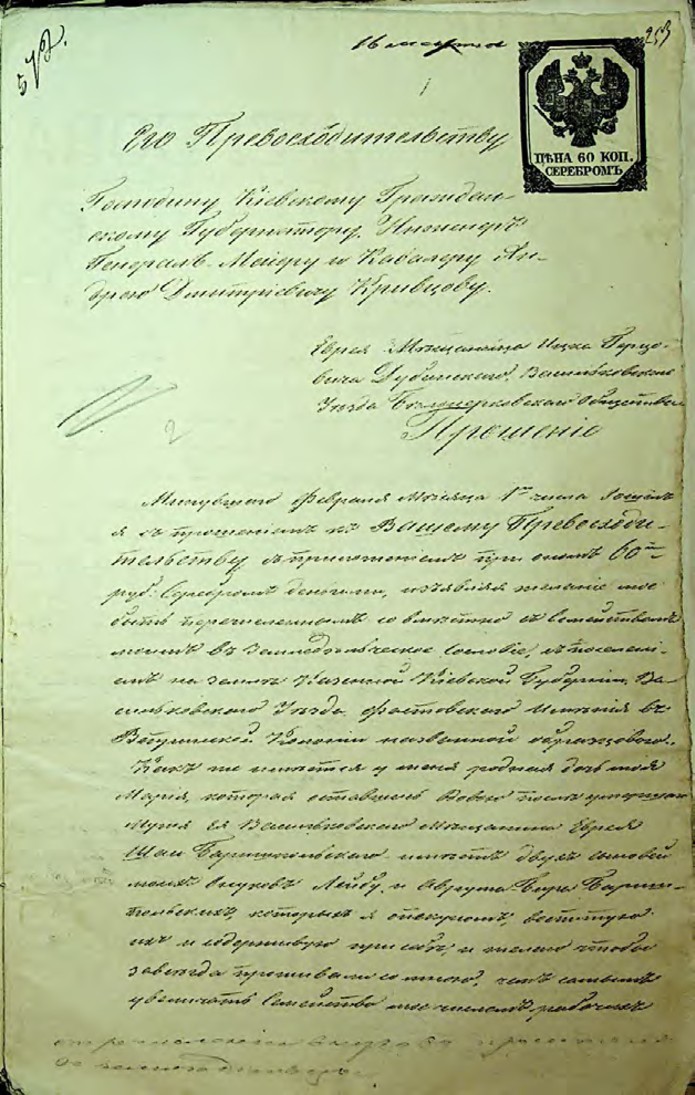 572.
16 марта
253
ЦѢНА 60 КОП.
СЕРЕБРОМЪ
Его Превосходительству
Господину Кіевскому Граждан-
скому Губернатору, Инженеръ
Генералъ-Маіору и Кавалеру Ан-
дрею Дмитріевичу Кривцову.
Еврея Мѣщанина Ицка Герцо-
вича Дубинскаго, Васильковскаго
Уѣзда Бѣлоцерковскаго Общества
Прошеніе
2
Минувшаго Февраля Мѣсяца 1го числа
я съ прошеніемъ къ Вашему Превосходи-
тельству съ приложеніемъ при ономъ 60
руб. Серебромъ деньгами, изъявляя желаніе мое
быть перечисленнымъ совмѣстно съ Семействомъ
моимъ въ Земледѣльческое Сословіе, съ поселені-
емъ на земли Казенной Кіевской Губерніи, Ва-
сильковскаго Уѣзда Фастовскаго Имѣнія въ
Колоніи названной образцовою.
Какъ же имѣется у меня родная дочь моя
Марія, которая оставшись вдовою послѣ умершаго
мужа ея Васильковскаго Мѣщанина Еврея
имѣетъ двухъ сыновей
моихъ внуковъ Лейбу, и
которыхъ я опекуномъ,
ихъ и содерживую при себѣ, и желаю чтобы
завсегда проживали со мною, чемъ самымъ
увеличать Семейство мое числомъ рабочихъ